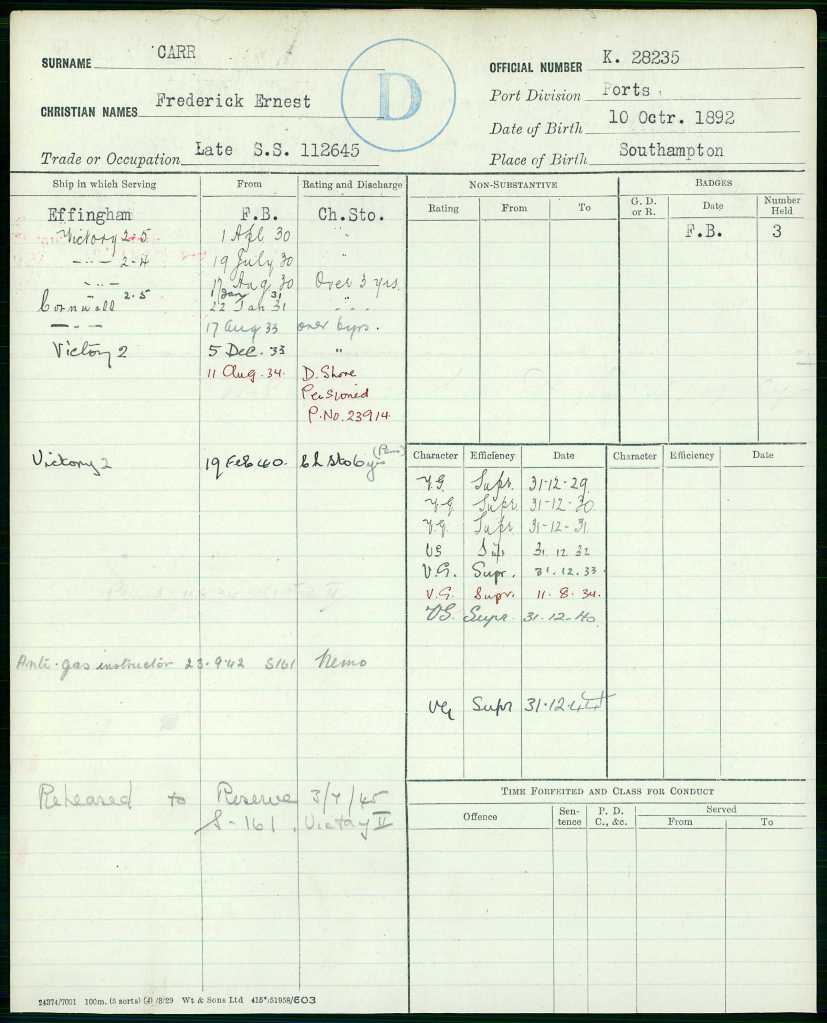 SURNAME CARR
OFFICIAL NUMBER K. 28235
D
CHRISTIAN NAMES Frederick Ernest
Port Division Ports
Date of Birth 10 Octr. 1892
Trade or Occupation Late S.S. 112645
Place of Birth Southampton
Ship in which Serving From Rating and Discharge
Effingham F.B. Ch.Sto.
Victory 2.5 1 Apl 30 "
-"- 2.4 19 July 30 "
-"- 17 Aug 30 Over 3 yrs.
" 2.5 1 Jan 31 "
Cornwall 22 Jan 31 - - -
-"- 17 Aug 33 over 6yrs.
Victory 2 5 Dec. 33 "
11 Aug. 34. D. Shore
Pensioned
P. No. 23914.
Victory 2 19 Feb 40. Ch Sto 6 yrs (Pen)
Anti-gas instructor 23.9.42 S161 Nemo
Released to Reserve 3/7/45
S-161. Victory II
NON-SUBSTANTIVE
Rating From To
BADGES
G. D. or R. Date Number Held
F.B. 3
Character Efficiency Date Character Efficiency Date
V.G. Supr. 31-12-29
V.G. Supr. 31-12-30
V.G. Supr. 31-12-31
VG Sup 31.12.32
V.G. Supr. 31.12.33.
V.G. Supr. 11.8.34.
VG. Supr. 31-12-40
VG Supr 31-12-44
TIME FORFEITED AND CLASS FOR CONDUCT
Offence Sentence P. D. C., &c. Served
From To
24374/7001 100m. (5 sorts) (4) /8/29 Wt & Sons Ltd 415*/51958/603